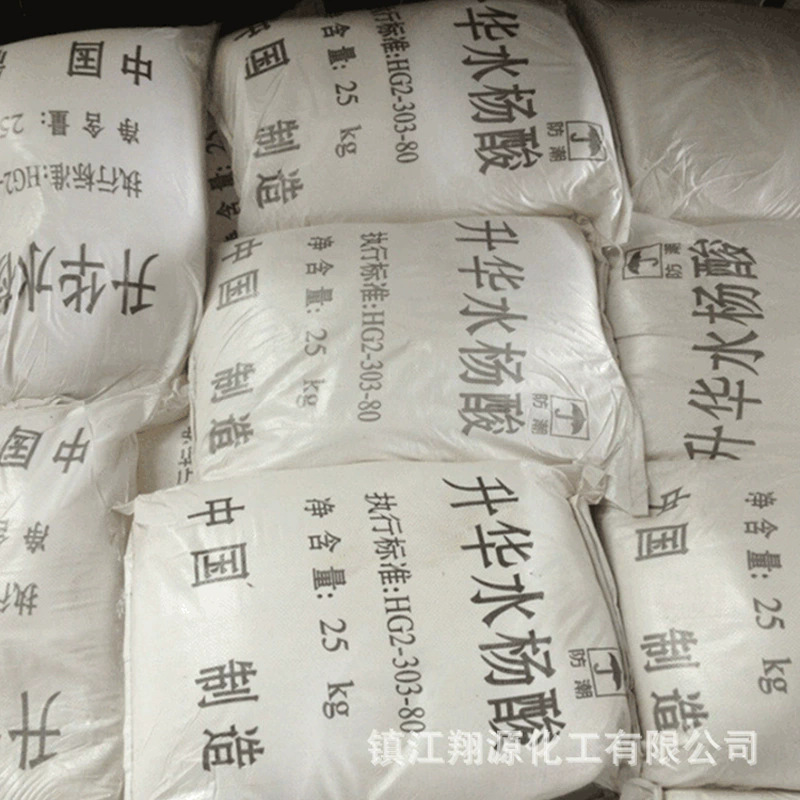 中国
净含量: 25
执行标准:HG2-
升华水杨
升华水杨酸
防潮
执行标准:HG2-303-80
净含量: 25 kg
中国 制造
升华水杨酸
防潮
执行标准:HG2-303-80
净含量: 25 kg
中国 制造
升华水杨酸
防潮
中国
净含
执行
升
升华水杨酸
防潮
执行标准:HG2-303-80
净含量: 25 kg
中国 制造
净含量: 25 kg
中国 制造
镇江翔源化工有限公司